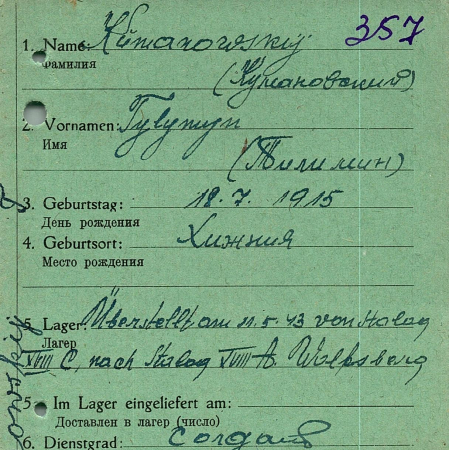 357
1. Name: Kumanowskij
Фамилия
(Кумановский)
2. Vornamen:
Имя
3. Geburtstag: 18.7.1915
День рождения
4. Geburtsort: Хижния
Место рождения
5. Lager: Überstellt am 21.5.43 von Stalag
Лагер
XVIII C, nach Stalag XVIII A. Wolfsberg
5. Im Lager eingeliefert am:
Доставлен в лагер (число)
6. Dienstgrad: Солдат